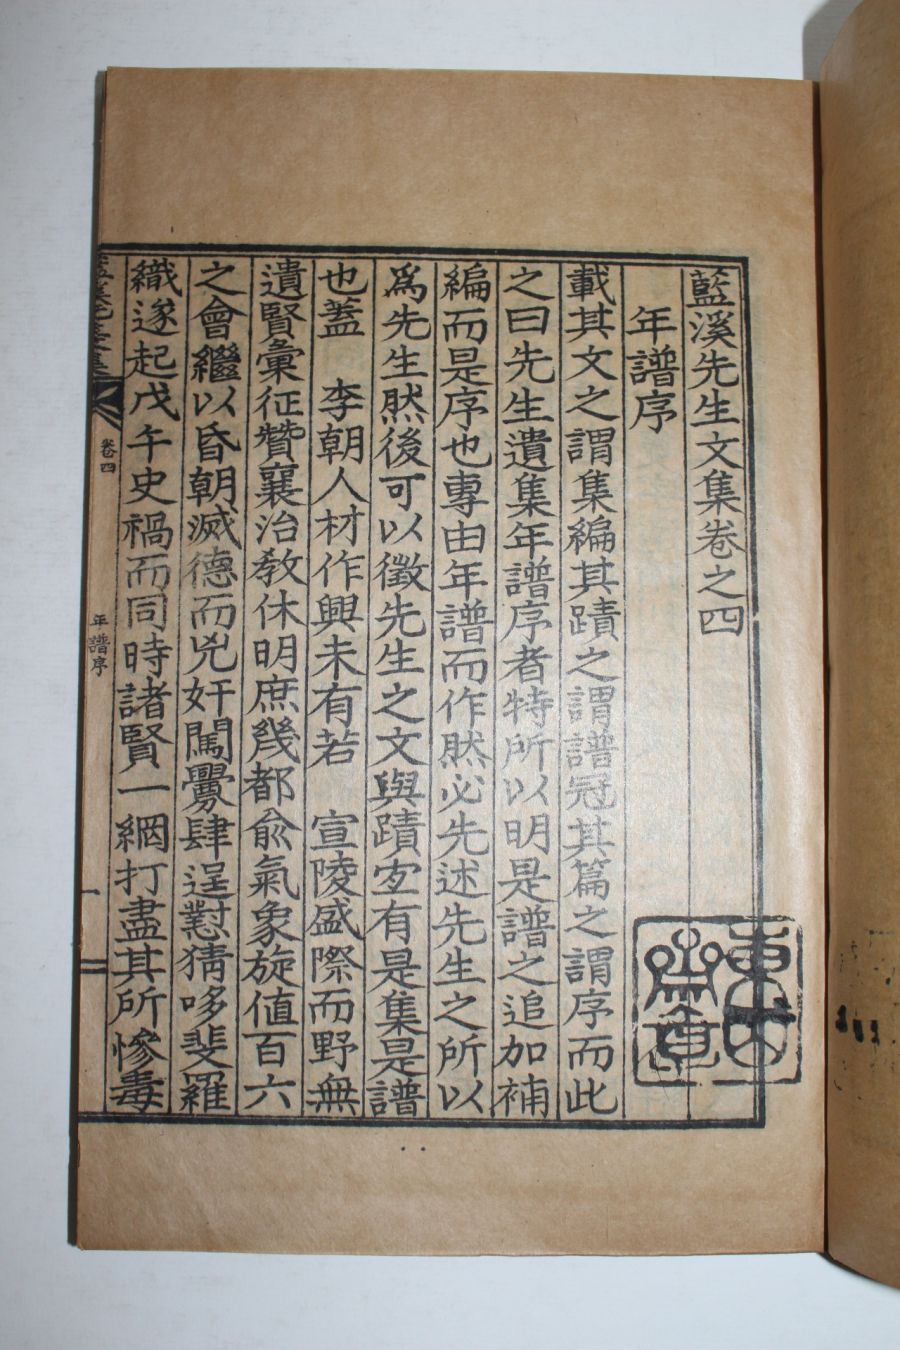 藍溪先生文集卷之四
年譜序
載其文之謂集編其蹟之謂譜冠其篇之謂序而此
之曰先生遺集年譜序者特所以明是譜之追加補
編而是序也專由年譜而作然必先述先生之所以
爲先生然後可以徵先生之文與蹟宜有是集是譜
也蓋 李朝人材作興未有若 宣陵盛際而野無
遺賢彙征贊襄治敎休明庶幾都兪氣象旋値百六
之會繼以昏朝滅德而兇奸闖釁肆逞懟猜哆斐羅
織遂起戊午史禍而同時諸賢一網打盡其所慘毒
卷四
年譜序
一